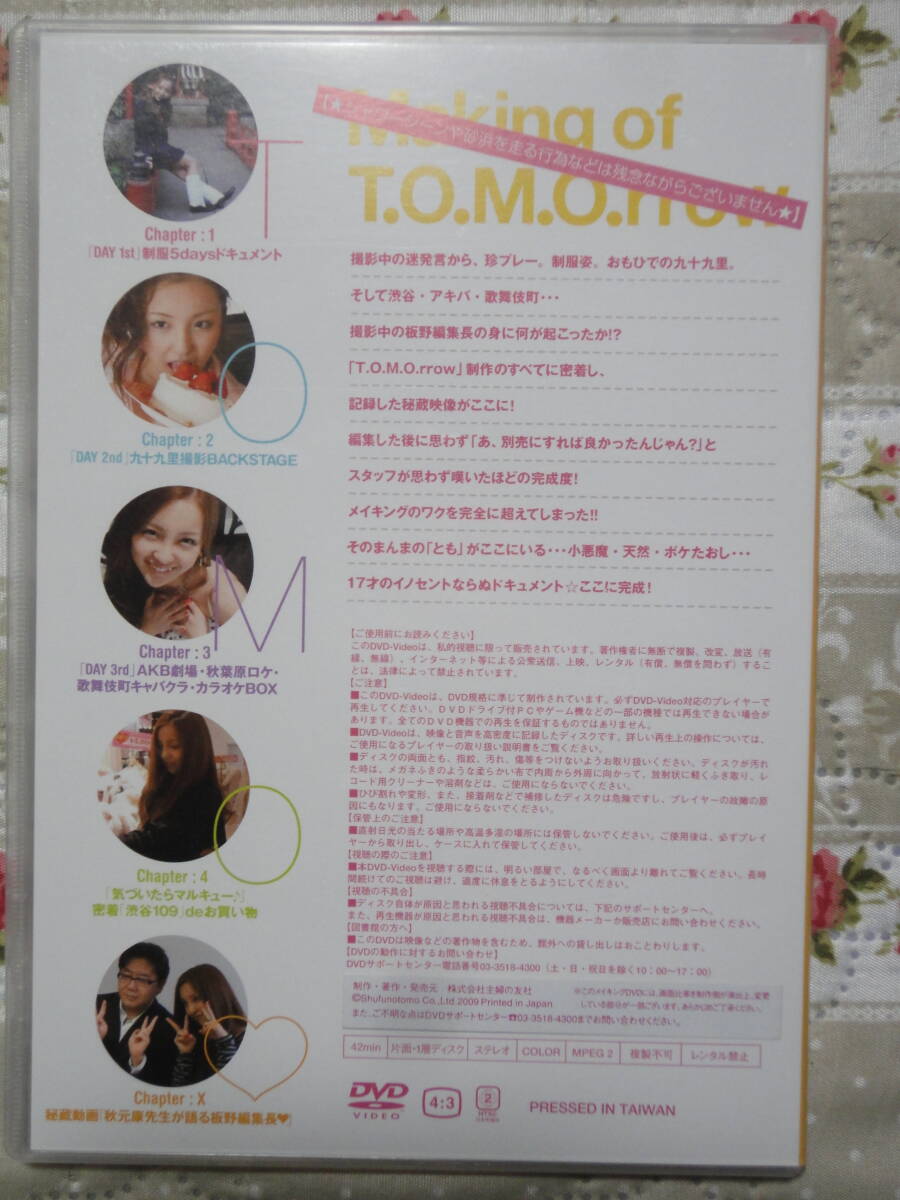 Making of
T.O.M.O.rrow
【★シャワーシーンや砂浜を走る行為などは残念ながらございません★】
T
Chapter : 1
「DAY 1st」制服5daysドキュメント
O
Chapter : 2
「DAY 2nd」九十九里撮影BACKSTAGE
M
Chapter : 3
「DAY 3rd」AKB劇場・秋葉原ロケ・
歌舞伎町キャバクラ・カラオケBOX
O
Chapter : 4
「気づいたらマルキュー♪」
密着「渋谷109」deお買い物
Chapter : X
秘蔵動画「秋元康先生が語る板野編集長♥」
撮影中の迷発言から、珍プレー。制服姿。おもひでの九十九里。
そして渋谷・アキバ・歌舞伎町・・・
撮影中の板野編集長の身に何が起こったか!?
「T.O.M.O.rrow」制作のすべてに密着し、
記録した秘蔵映像がここに!
編集した後に思わず「あ、別売にすれば良かったんじゃん?」と
スタッフが思わず嘆いたほどの完成度!
メイキングのワクを完全に超えてしまった!!
そのまんまの「とも」がここにいる・・・小悪魔・天然・ボケたおし・・・
17才のイノセントならぬドキュメント☆ここに完成!
【ご使用前にお読みください】
このDVD-Videoは、私的視聴に限って販売されています。著作権者に無断で複製、改変、放送（有
線、無線）、インターネット等による公衆送信、上映、レンタル（有償、無償を問わず）するこ
とは、法律によって禁止されています。
【ご注意】
■このDVD-Videoは、DVD規格に準じて制作されています。必ずDVD-Video対応のプレイヤーで
再生してください。ＤＶＤドライブ付ＰＣやゲーム機などの一部の機種では再生できない場合が
あります。全てのＤＶＤ機器での再生を保証するものではありません。
■DVD-Videoは、映像と音声を高密度に記録したディスクです。詳しい再生上の操作については、
ご使用になるプレイヤーの取り扱い説明書をご覧ください。
■ディスクの両面とも、指紋、汚れ、傷等をつけないようお取り扱いください。ディスクが汚れ
た時は、メガネふきのような柔らかい布で内周から外周に向かって、放射状に軽くふき取り、レ
コード用クリーナーや溶剤などは、ご使用にならないでください。
■ひび割れや変形、また、接着剤などで補修したディスクは危険ですし、プレイヤーの故障の原
因にもなります。ご使用にならないでください。
【保管上のご注意】
■直射日光の当たる場所や高温多湿の場所には保管しないでください。ご使用後は、必ずプレイ
ヤーから取り出し、ケースに入れて保管してください。
【視聴の際のご注意】
■本DVD-Videoを視聴する際には、明るい部屋で、なるべく画面より離れてご覧ください。長時
間続けてのご視聴は避け、適度に休息をとるようにしてください。
【視聴の不具合】
■ディスク自体が原因と思われる視聴不具合については、下記のサポートセンターへ。
また、再生機器が原因と思われる視聴不具合は、機器メーカーか販売店にお問い合わせください。
【図書館の方へ】
■このDVDは映像などの著作物を含むため、館外への貸し出しはおことわりします。
【DVDの動作に対するお問い合わせ】
DVDサポートセンター電話番号03-3518-4300（土・日・祝日を除く10：00〜17：00）
制作・著作・発売元　株式会社主婦の友社
©Shufunotomo Co.,Ltd 2009 Printed in Japan
また、ご不明な点はDVDサポートセンター☎03-3518-4300までお問い合わせください。
※このメイキングDVDには、画面比率を制作側が演出上、変更
している部分が一部ございます。あらかじめご了承ください。
42min 片面・1層ディスク ステレオ COLOR MPEG 2 複製不可 レンタル禁止
DVD VIDEO 4:3 2 PRESSED IN TAIWAN